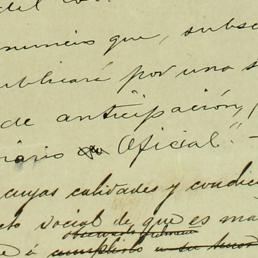 del con
anuncio que, subsc
ublicará por una s
de anticipación,
iario Oficial". -
cuyas calidades y condici
eto social de que es ma
e á cumplirlo